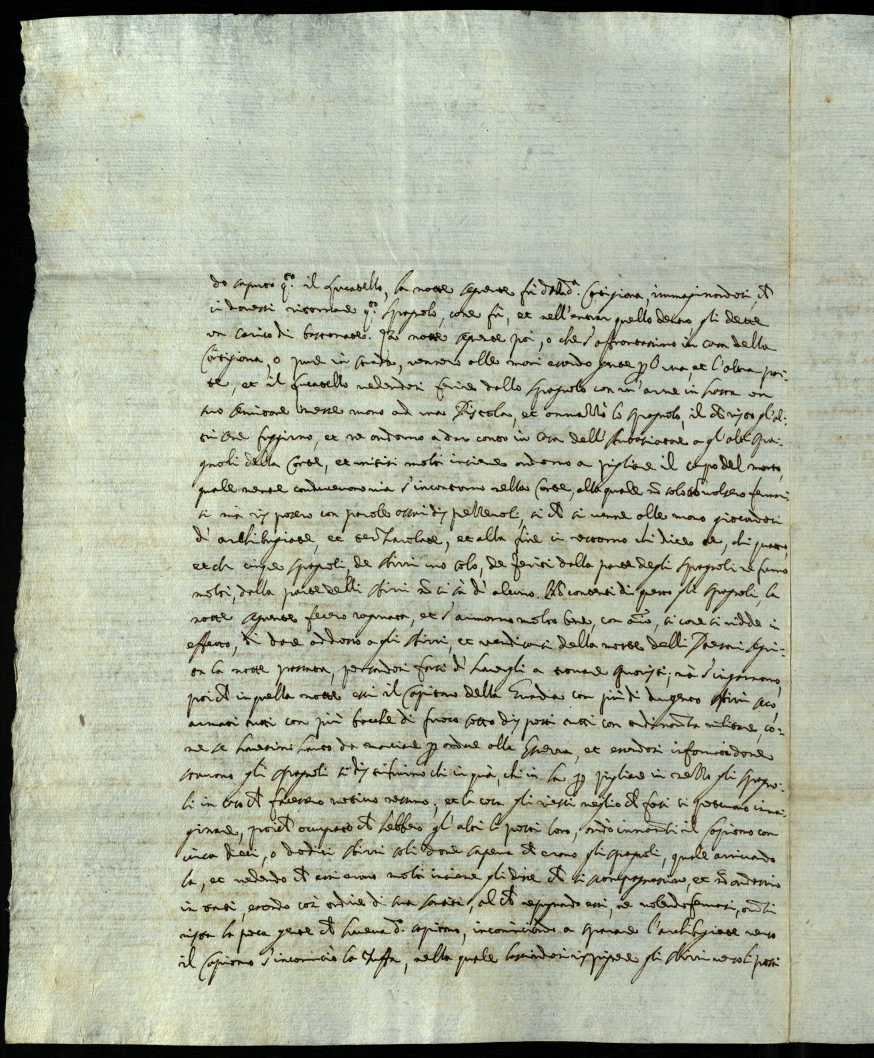 do saputo q.to il Lucatello, la notte seguente fù dalla d.a Cortigiana, immaginandosi, ch'
ivi dovessi ritornare q.to spagnolo, come fù, et nell'entrar quello dentro gli dette
un carico di bastonate. La notte seguente poi, o che s'affrontassino in casa della
Cortigiana, o pure in strada, vennero alle mani essendo gente p l'una, et l'altra par-
te, et il Lucatello vedendosi ferire dallo spagnolo con un'arme in
suo messe mano ad una Pistola, et ammazzò lo spagnolo, il che visto gl'al-
tri fuggirno, et ne andorno a dar conto in casa dell'Ambasciatore a gl'altri spa-
gnoli della Corte, et unitisi molti insieme andorno a pigliare il corpo del morto,
quale mentre conducevono via s'incontrorno nella Corte, alla quale nõ solo nõ volsero fermar-
si mà risposero con parole assai dispettevoli, si ch' si venne alle mani giocandosi
d'archibugiate, et et alla fine ne restorno chi dice tre, chi quattro,
et chi cinque spagnoli, de sbirri uno solo, de feriti dalla parte degli spagnoli ne furno
molti, dalla parte delli sbirri nõ si sà di alcuno. Nõ contenti di questo gli spagnoli, la
notte seguente fecero ragunata, et s'armorno molto bene, con animo, si come si vidde in
effetto, di dare addosso a gli sbirri, et vendicarsi della morte delli Paesani segui-
ta la notte passata, persandosi forsi di haverli a trovare sprovisti; mà s'ingannorno,
poich' in quella notte essi il Capitano della Guardia con più di dugento sbirri seco,
armati tutti con più bocche di fuoco sotto disposti tutti con ordinanza militare, co-
me se havessino havto da marciare p ordine alla Guerra, et essendosi informati dove
stavono gli spagnoli si distribuirno chi in quà, chi in là p pigliare in mezzo gli spagno-
li in caso ch' facessero motivo nessuno; et la cosa gli riescì meglio ch' forsi si potevano imma-
ginare, poich' occupato ch' hebbero gl'altri li posti loro, andò innanti il Capitano con
circa dieci, o dodici sbirri soli dove sapeva ch' erano gli spagnoli, quale arrivando
là, et vedendo ch' essi erano molti insieme gli disse ch' si scompagnassino, et nõ andassino
in tanti, essendo così ordine di sua santità, al ch' repugnando essi, ne volendo fermarsi,
vista la poca gente ch' haveva d.o capitano, incominciando a sparare l'archibugiate verso
il Capitano s'incominciò la zuffa, nella quale lasciandosi rispingere gli sbirri verso li posti